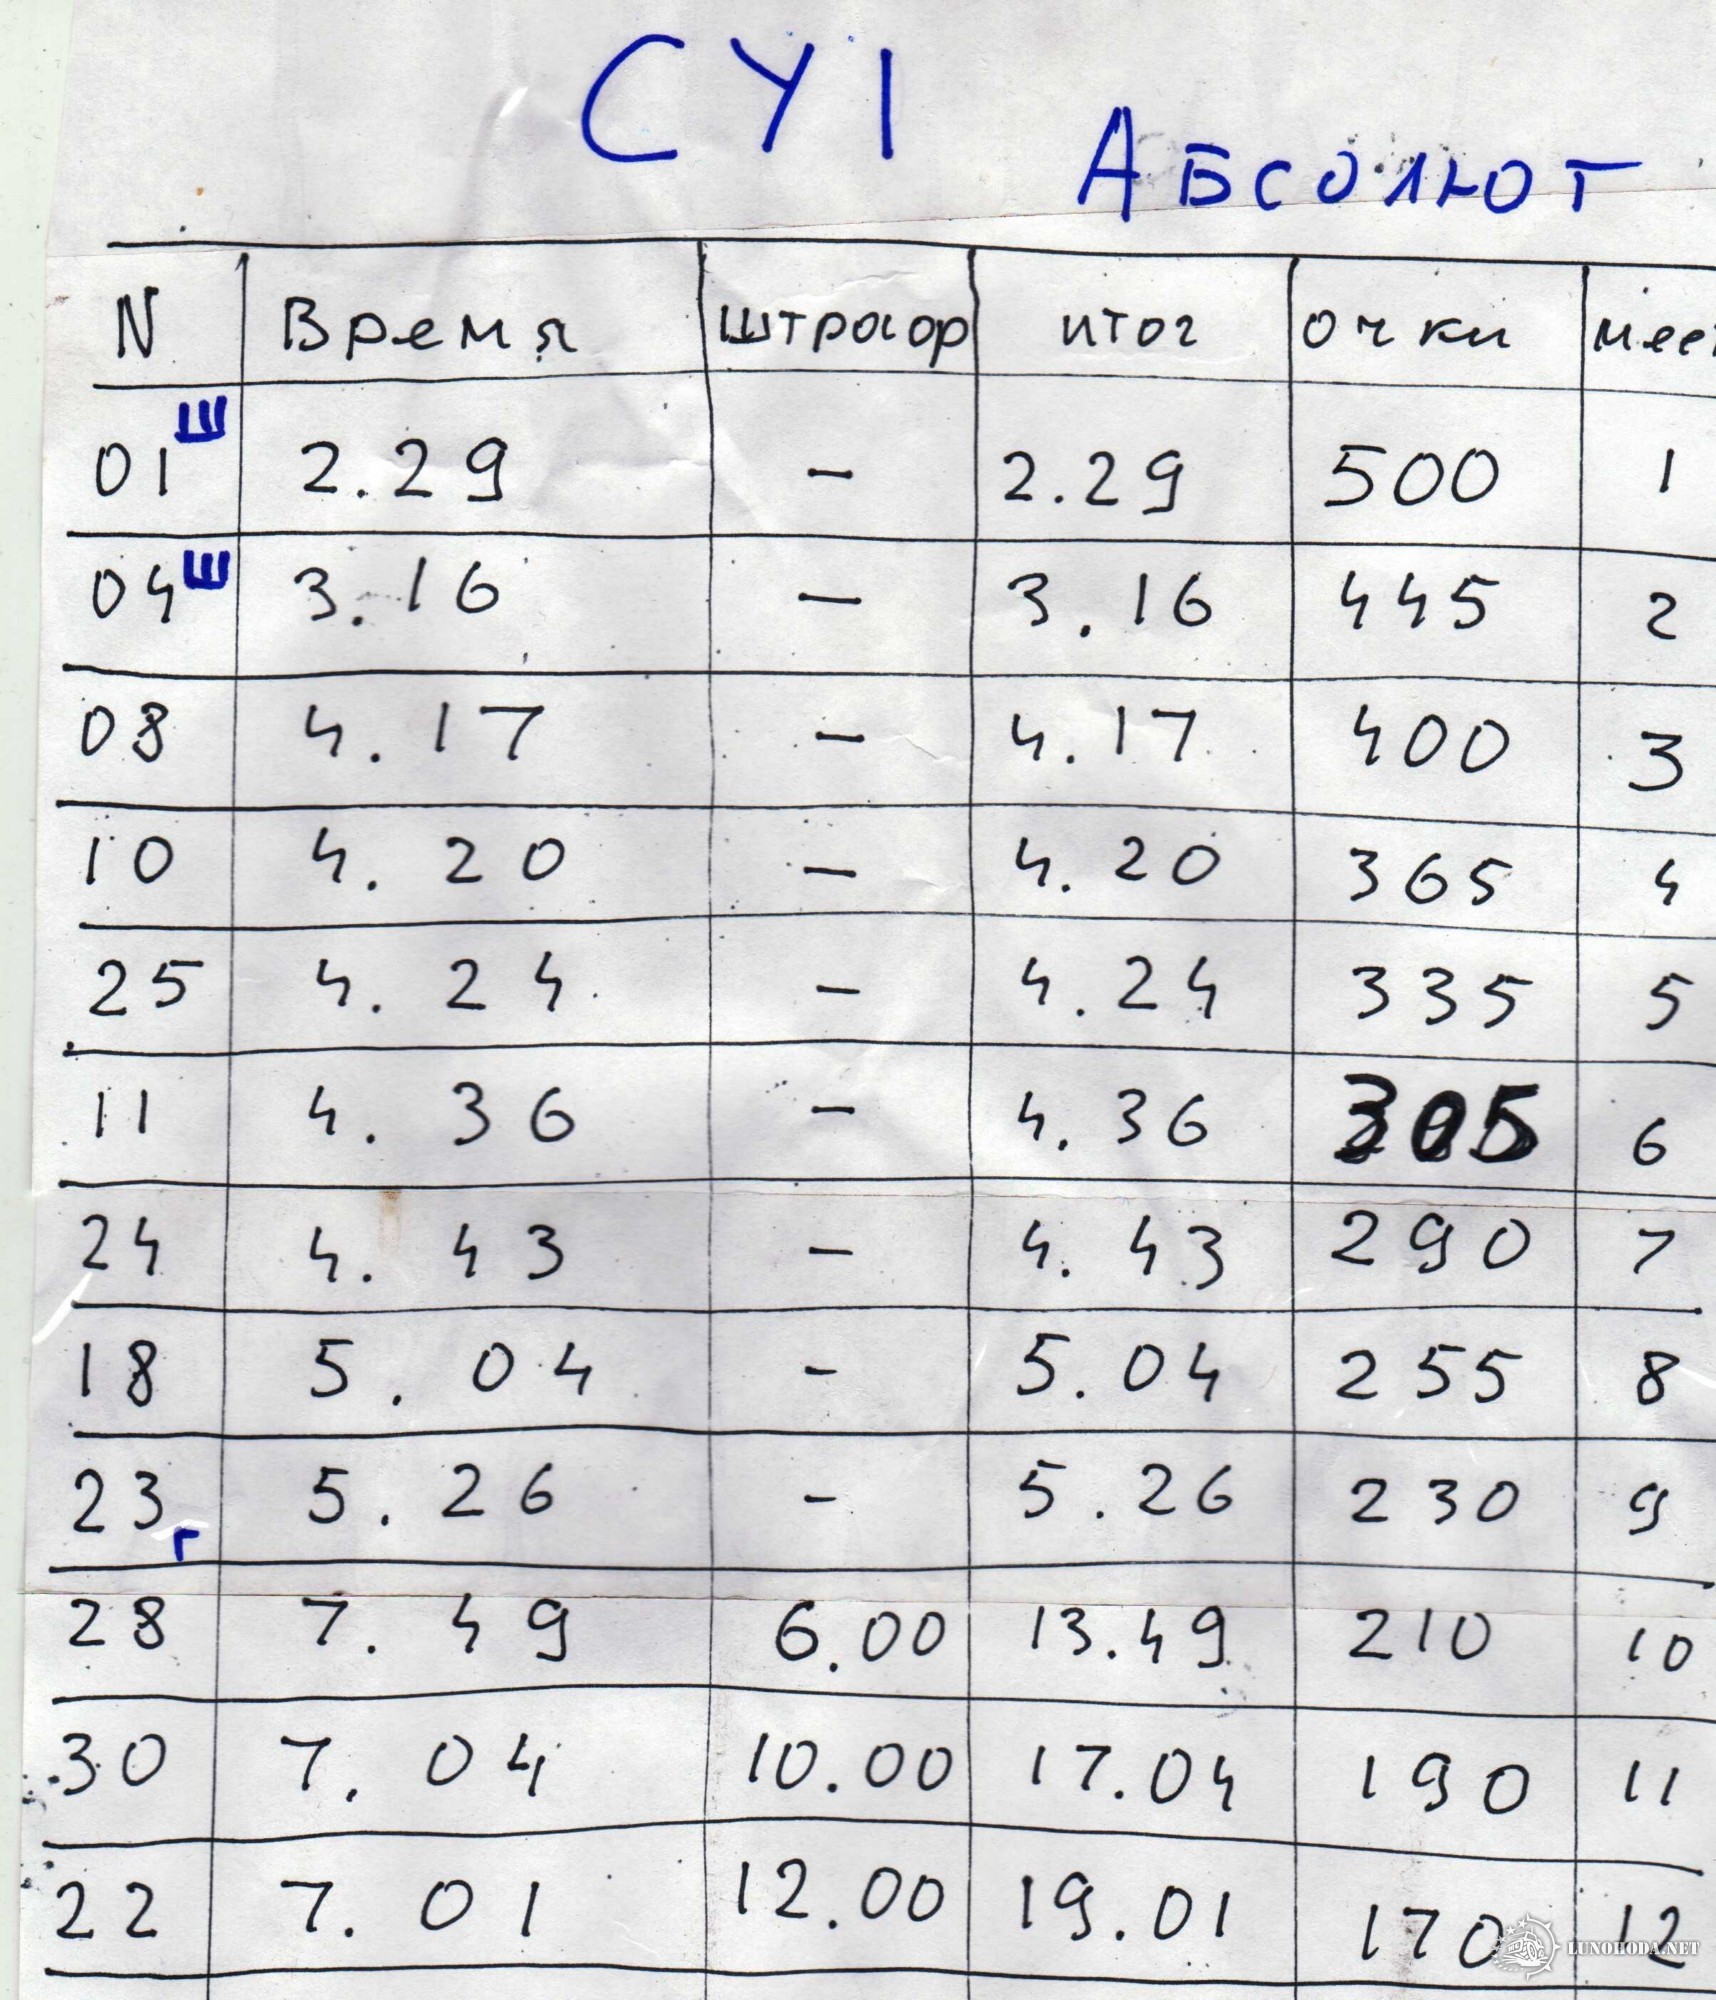 СУ1
Абсолют
N Время штраф итог очки мест
01 Ш 2.29 – 2.29 500 1
04 Ш 3.16 – 3.16 445 2
08 4.17 – 4.17 400 3
10 4.20 – 4.20 365 4
25 4.24 – 4.24 335 5
11 4.36 – 4.36 305 6
24 4.43 – 4.43 290 7
18 5.04 – 5.04 255 8
23 г 5.26 – 5.26 230 9
28 7.49 6.00 13.49 210 10
30 7.04 10.00 17.04 190 11
22 7.01 12.00 19.01 170 12
LUNOHODA.NET